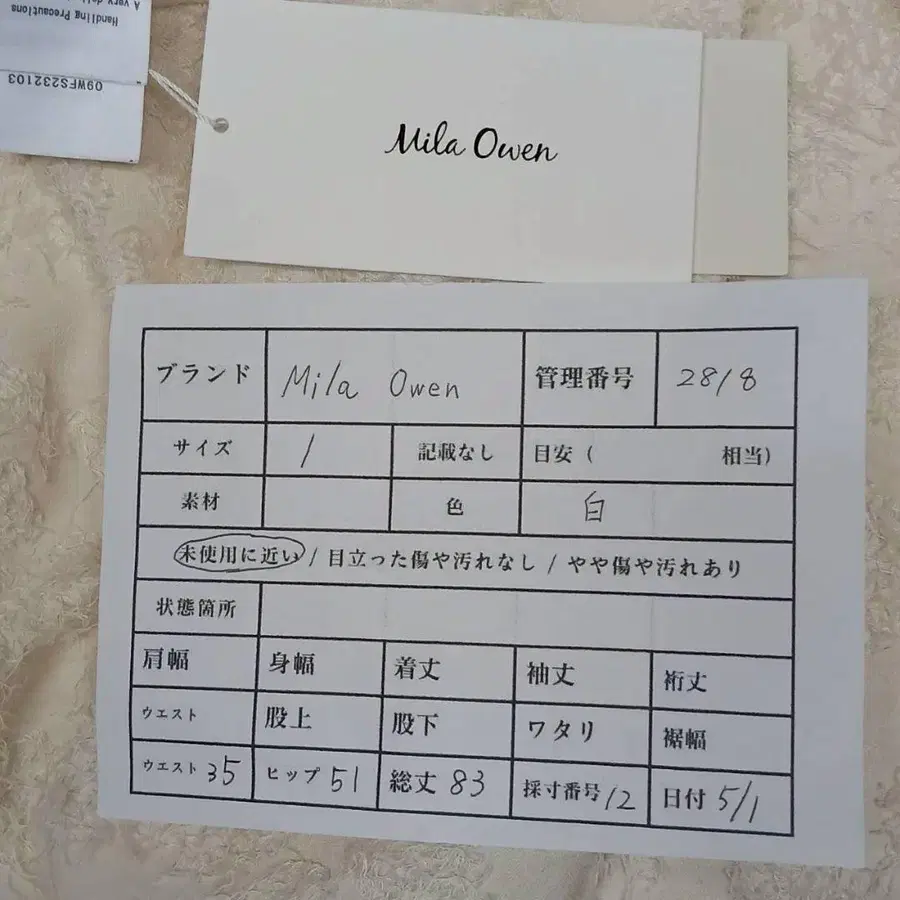 A very deli
Handling Precautions
09WFS232103
Mila Owen
ブランド Mila Owen 管理番号 2818
サイズ 1 記載なし 目安 ( 相当)
素材 色 白
未使用に近い / 目立った傷や汚れなし / やや傷や汚れあり
状態箇所
肩幅 身幅 着丈 袖丈 裄丈
ウエスト 股上 股下 ワタリ 裾幅
ウエスト 35 ヒップ 51 総丈 83 採寸番号 12 日付 5/1